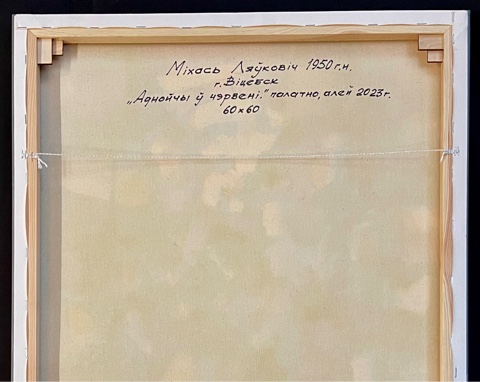 Міхась Ляўковіч 1950 г.н.
г. Віцебск
„Аднойчы ў чэрвені." палатно, алей 2023 г.
60х60